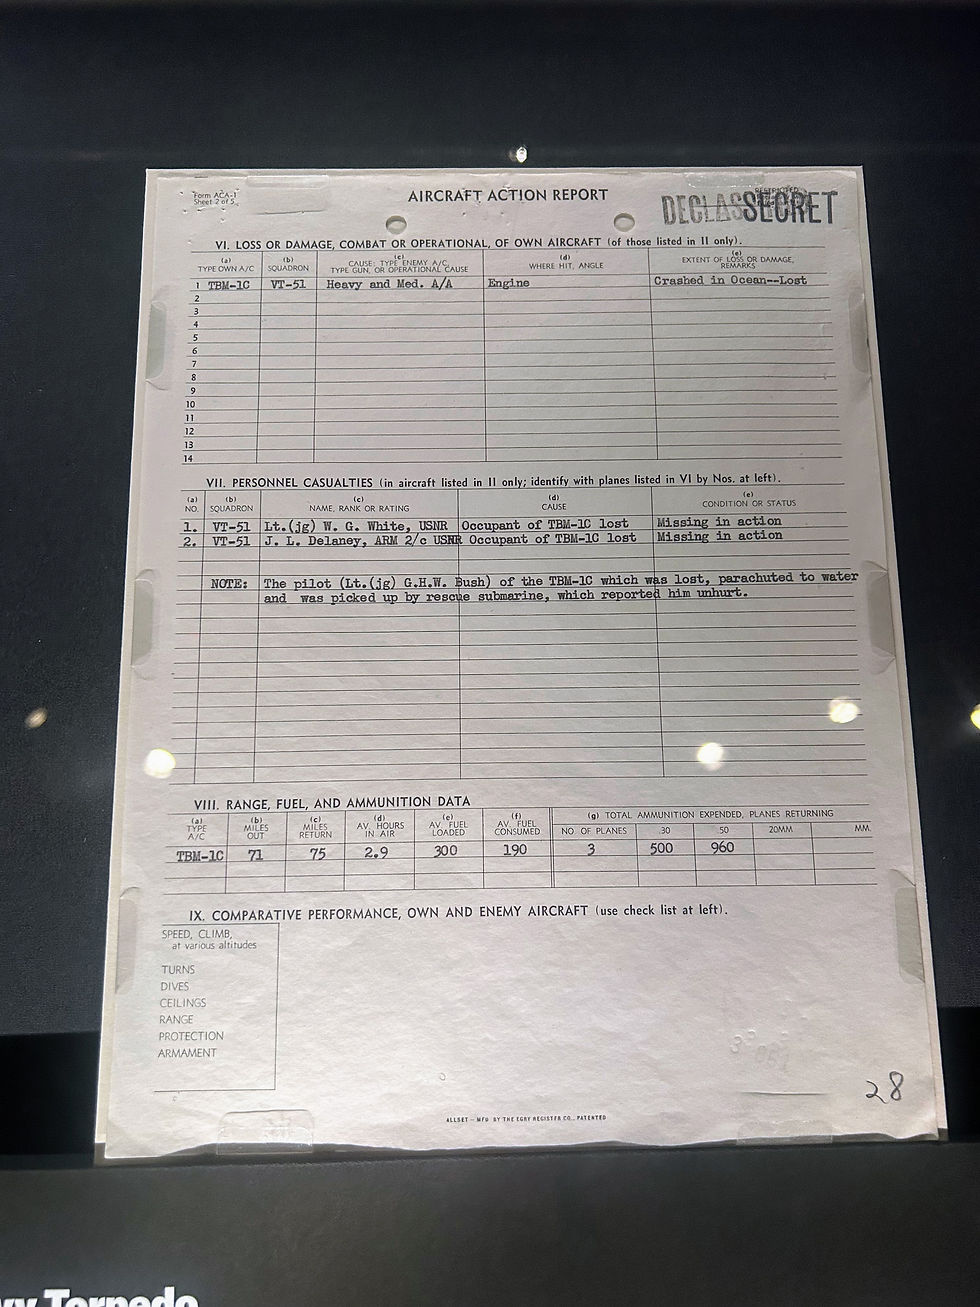 Form ACA-1
Sheet 2 of 5
AIRCRAFT ACTION REPORT
RESTRICTED
DECLAS SECRET
VI. LOSS OR DAMAGE, COMBAT OR OPERATIONAL, OF OWN AIRCRAFT (of those listed in II only).
(a) TYPE OWN A/C (b) SQUADRON (c) CAUSE: TYPE ENEMY A/C, TYPE GUN, OR OPERATIONAL CAUSE (d) WHERE HIT, ANGLE (e) EXTENT OF LOSS OR DAMAGE, REMARKS
1 TBM-1C VT-51 Heavy and Med. A/A Engine Crashed in Ocean--Lost
2
3
4
5
6
7
8
9
10
11
12
13
14
VII. PERSONNEL CASUALTIES (in aircraft listed in II only; identify with planes listed in VI by Nos. at left).
(a) NO. (b) SQUADRON (c) NAME, RANK OR RATING (d) CAUSE (e) CONDITION OR STATUS
1. VT-51 Lt.(jg) W. G. White, USNR Occupant of TBM-1C lost Missing in action
2. VT-51 J. L. Delaney, ARM 2/c USNR Occupant of TBM-1C lost Missing in action
NOTE: The pilot (Lt.(jg) G.H.W. Bush) of the TBM-1C which was lost, parachuted to water
and was picked up by rescue submarine, which reported him unhurt.
VIII. RANGE, FUEL, AND AMMUNITION DATA
(a) TYPE A/C (b) MILES OUT (c) MILES RETURN (d) AV. HOURS IN AIR (e) AV. FUEL LOADED (f) AV. FUEL CONSUMED (g) TOTAL AMMUNITION EXPENDED, PLANES RETURNING
NO. OF PLANES .30 .50 20MM MM.
TBM-1C 71 75 2.9 300 190 3 500 960
IX. COMPARATIVE PERFORMANCE, OWN AND ENEMY AIRCRAFT (use check list at left).
SPEED, CLIMB,
at various altitudes
TURNS
DIVES
CEILINGS
RANGE
PROTECTION
ARMAMENT
28
ALLSET — MFD BY THE EGRY REGISTER CO., PATENTED
Torpedo